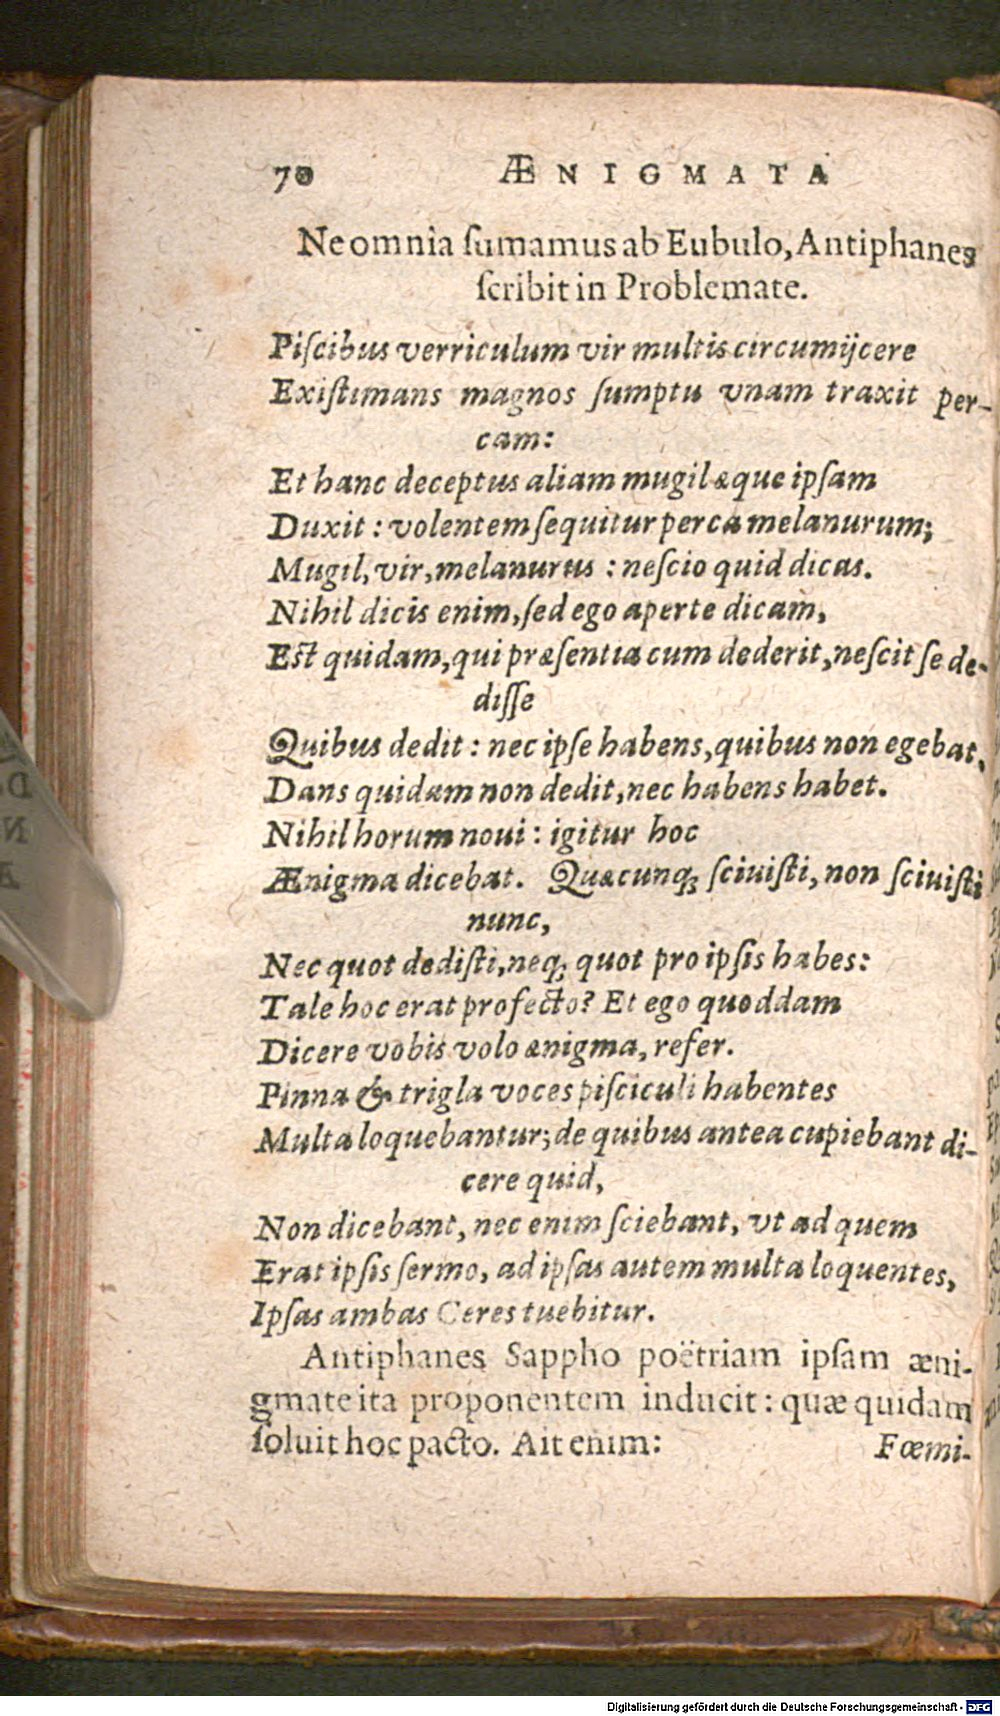 70 ÆNIGMATA
Ne omnia ſumamus ab Eubulo, Antiphanes
ſcribit in Problemate.
Piſcibus verriculum vir multis circumijcere
Exiſtimans magnos ſumptu vnam traxit per-
cam:
Et hanc deceptus aliam mugil æque ipſam
Duxit: volentem ſequitur perca melanurum;
Mugil, vir, melanurus: neſcio quid dicas.
Nihil dicis enim, ſed ego aperte dicam,
Eſt quidam, qui præſentia cum dederit, neſcit ſe de-
diſſe
Quibus dedit: nec ipſe habens, quibus non egebat,
Dans quidam non dedit, nec habens habet.
Nihil horum noui: igitur hoc
Ænigma dicebat. Quæcunq; ſciuiſti, non ſciuiſti
nunc,
Nec quot dediſti, neq; quot pro ipſis habes:
Tale hoc erat profecto? Et ego quoddam
Dicere vobis volo ænigma, refer.
Pinna & trigla voces piſciculi habentes
Multa loquebantur; de quibus antea cupiebant di-
cere quid,
Non dicebant, nec enim ſciebant, vt ad quem
Erat ipſis ſermo, ad ipſas autem multa loquentes,
Ipſas ambas Ceres tuebitur.
Antiphanes Sappho poëtriam ipſam æni-
gmate ita proponentem inducit: quæ quidam
ſoluit hoc pacto. Ait enim: Fœmi-
Digitalisierung gefördert durch die Deutsche Forschungsgemeinschaft - DFG